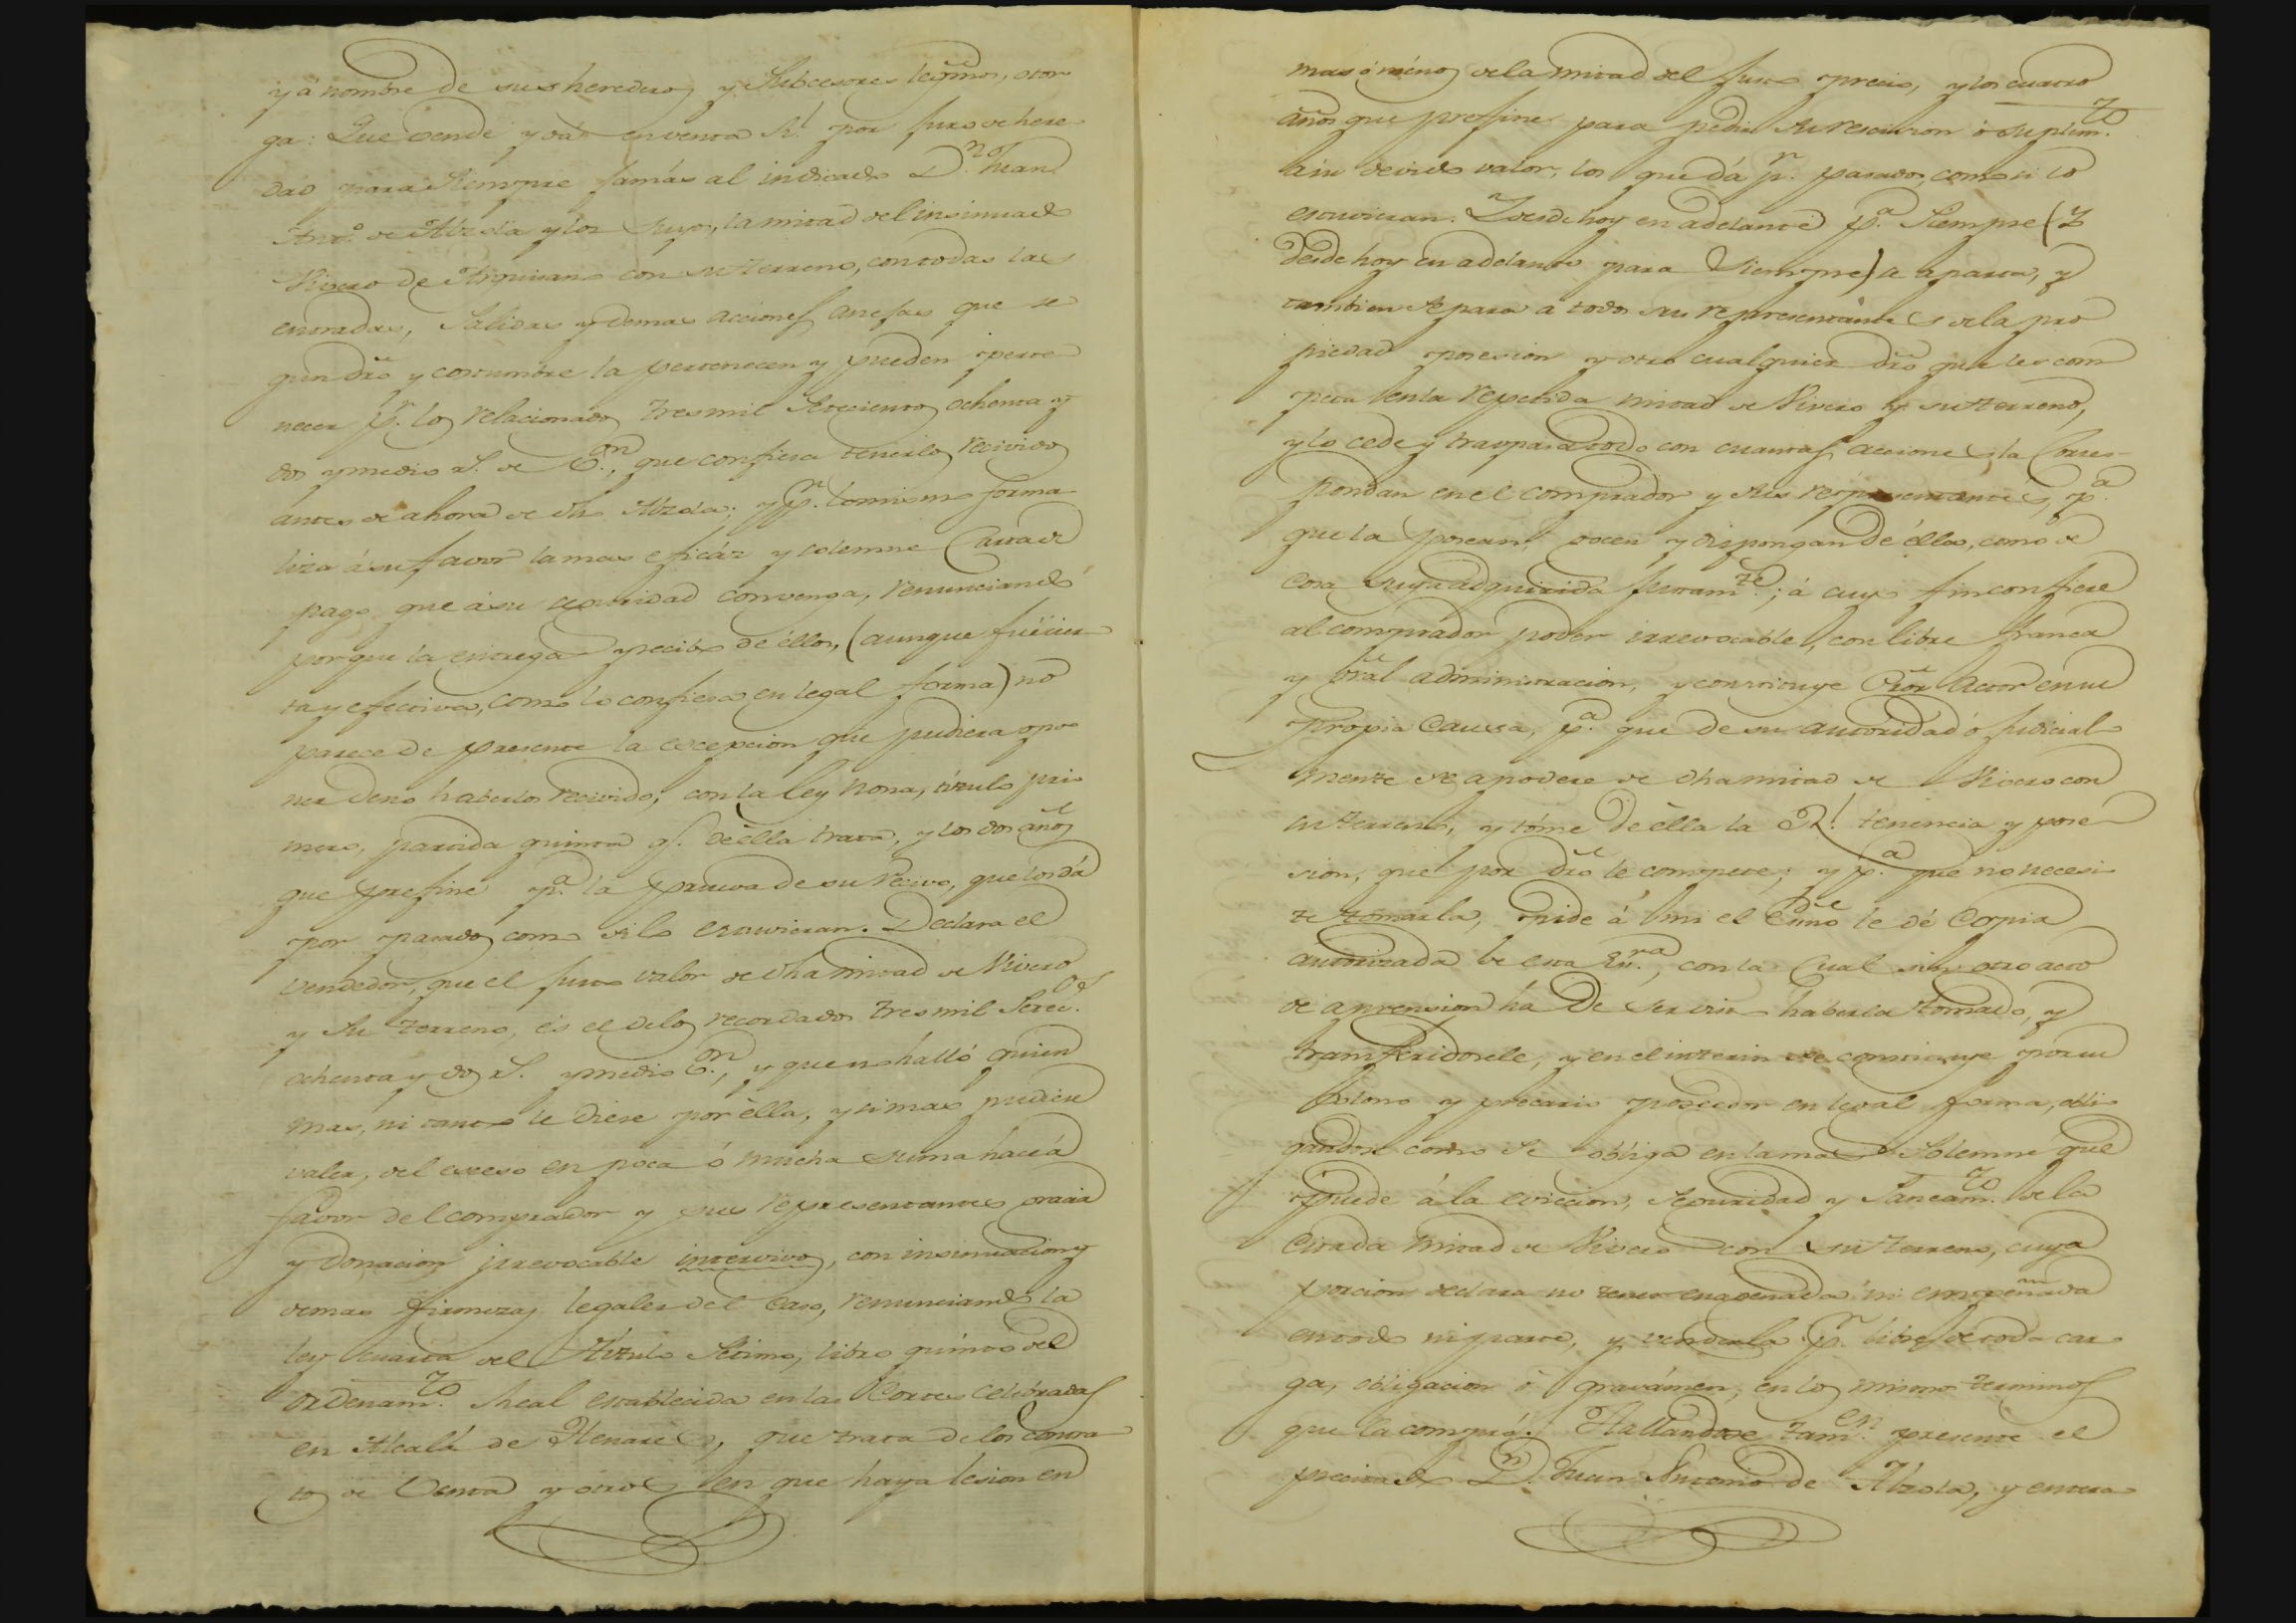 y á nombre de sus herederos y Subcesores legmos, otor
ga: Que vende y dá en venta Rl. por juro de here
dad para siempre jamás al indicado Dn. Juan
Anto. de Alzola y los suyos, la mitad del insinuado
Vivero de con su terreno, con todas las
entradas, Salidas y demas acciones anejas que se
gun dro y costumbre la pertenecen y pueden perte
necer pr. los relacionados tres mil Setecientos ochenta y
dos y medio rs. de Von., que confiesa tenerlos recividos
antes de ahora de dho Alzola; y pr. lo mismo forma
liza á su favor la mas eficáz y solemne Carta de
pago que á su seguridad convenga, renunciando
porque la entrega y recibo de éllos, (aunque fué cier
ta y efectiva, como lo confiesa en legal forma) no
parece de presente la escepcion que pudiera opo
ner de no haberlos recivido, con la ley nona, titulo pri
mero, partida quinta q. de élla trata, y los dos años
que prefine pa. la prueva de su recivo, que los dá
por pasados como si lo estuvieran. Declara el
vendedor, que el justo valor de dha mitad de Vivero
y su terreno, es el de los recordados tres mil Setecos.
ochenta y dos rs. y medio Von., y que no halló quien
mas, ni tanto le diese por élla, y si mas pudiere
valer, del esceso en poca ó mucha suma hace á
favor del comprador y sus representantes gracia
y donacion irrevocable intervivos, con insinuacion y
demas firmezas legales del caso, renunciando la
ley cuarta del Titulo Setimo, libro quinto del
ordenamto. Real establecida en las Cortes celebradas
en Alcalá de Henares, que trata de los contra
tos de Venta y otros en que haya lesion en
mas ó ménos de la mitad del justo precio, y los cuatro
años que prefine para pedir su rescision ó suplimto.
á su devido valor, los que dá pr. pasados, como si lo
estuvieran. Y desde hoy en adelante pa. Siempre (Y
desde hoy en adelante para siempre) se aparta, y
tambien separa a todos sus representantes de la pro
piedad posesion y otro cualquier dro que les com
peta en la repetida mitad de Vivero y su terreno,
y lo cede y traspasa todo con cuantas acciones la Corres-
pondan en el comprador y sus representantes, pa.
que la posean, gocen y dispongan de éllas, como de
Cosa suya adquirida justamte.; á cuyo fin confiere
al comprador poder irrevocable, con libre franca
y gral administracion, y constituye Pror Actor en su
propia Causa, pa. que de su autoridad ó judicial
mente se apodere de dha mitad de Vivero con
su terreno, y tóme de élla la Rl. tenencia y pose
sion, que por dro le compete; y pa. que no necesi
te tomarla, pide á mi el Esno le dé Copia
autorizada de esta Esra., con la Cual sin otro acto
de aprension ha de ser visto haberla tomado, y
transferidosele, y en el interin se constituye por su
Colono y precario poseedor en legal forma, obli
gandose como se obliga en la mas Solemne que
puede á la eviccion, seguridad y Saneamto. de la
Citada mitad de Vivero con su terreno, cuya
porcion declara no tener enagenada ni empeñada
en todo ni parte, y venderla pr. libre de toda car
ga, obligacion ó gravámen, en los mismos terminos
que la compró. Hallandose tamen. presente el
precitado Dn. Juan Antonio de Alzola, y entera